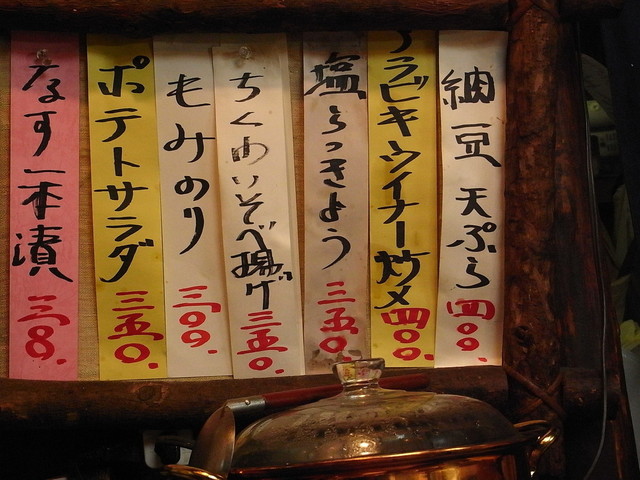 納豆 天ぷら 四〇〇.
アラビキウイナー炒メ 四〇〇.
塩らっきょう 三五〇.
ちくわいそべ揚げ 三五〇.
もみのり 三〇〇.
ポテトサラダ 三五〇.
なす一本漬 三〇〇.